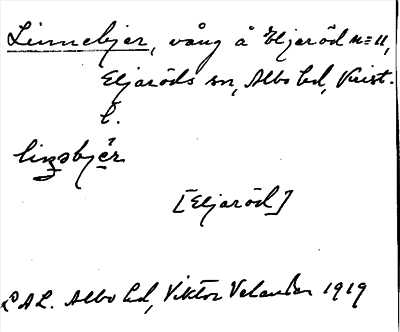 Linnebjer, vång å Eljaröd n=11,
Eljaröds sn, Albo hd, Krist.
l.
[Eljaröd]
LAL. Albo hd, Viktor Velander 1919